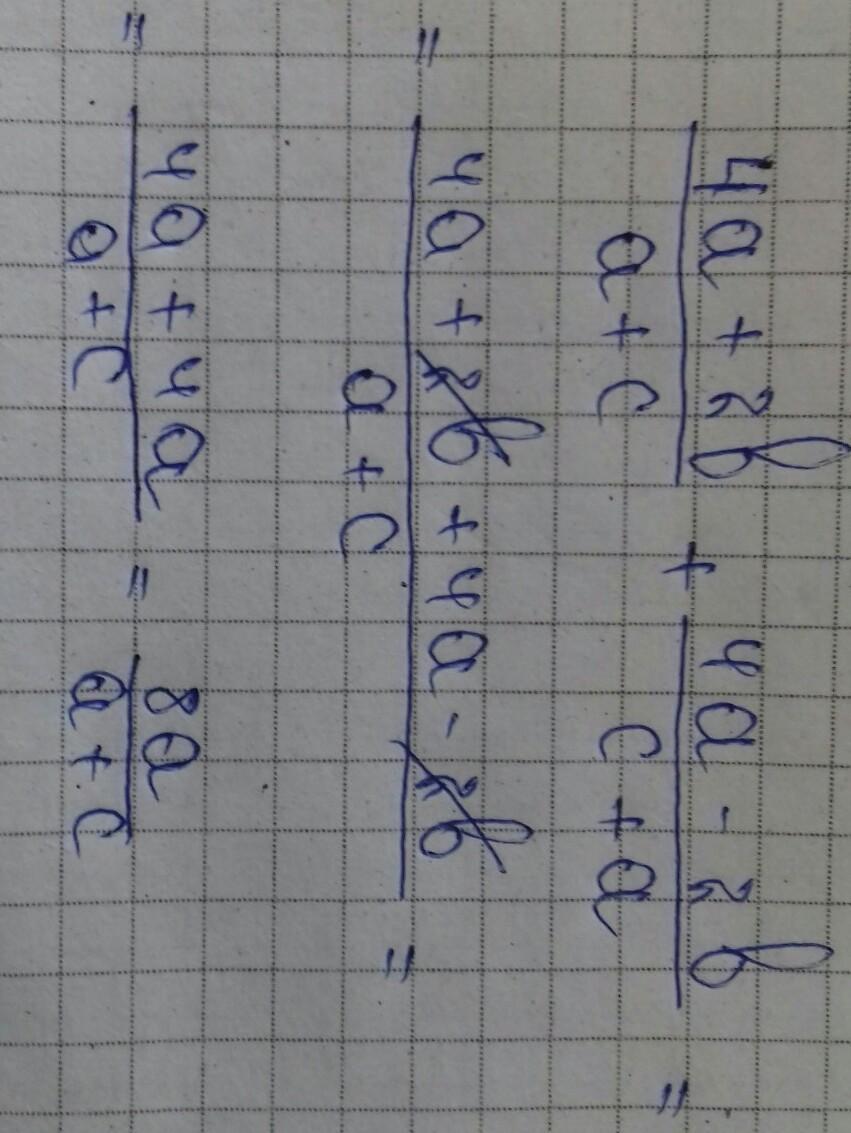 4a + 2b / a + c + 4a - 2b / c + a =
= 4a + 2b + 4a - 2b / a + c =
= 4a + 4a / a + c = 8a / a + c